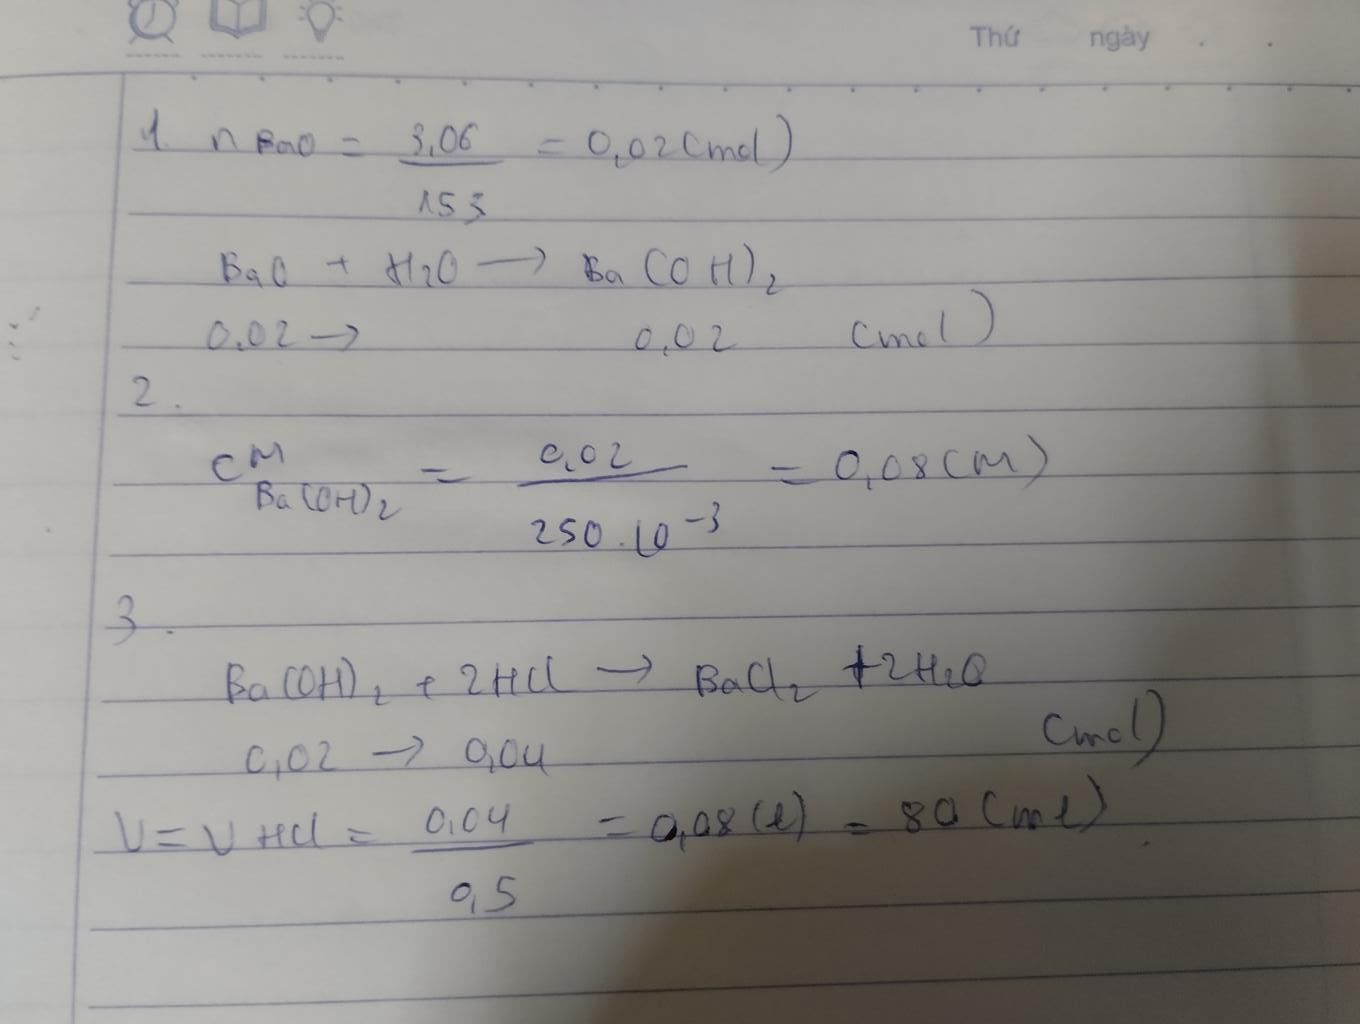 Thứ ngày
1. n BaO = 3,06 / 153 = 0,02 (mol)
BaO + H2O → Ba(OH)2
0,02 → 0,02 (mol)
2.
CM Ba(OH)2 = 0,02 / 250.10^-3 = 0,08 (M)
3.
Ba(OH)2 + 2HCl → BaCl2 + 2H2O
0,02 → 0,04 (mol)
V = V HCl = 0,04 / 0,5 = 0,08 (l) = 80 (ml)